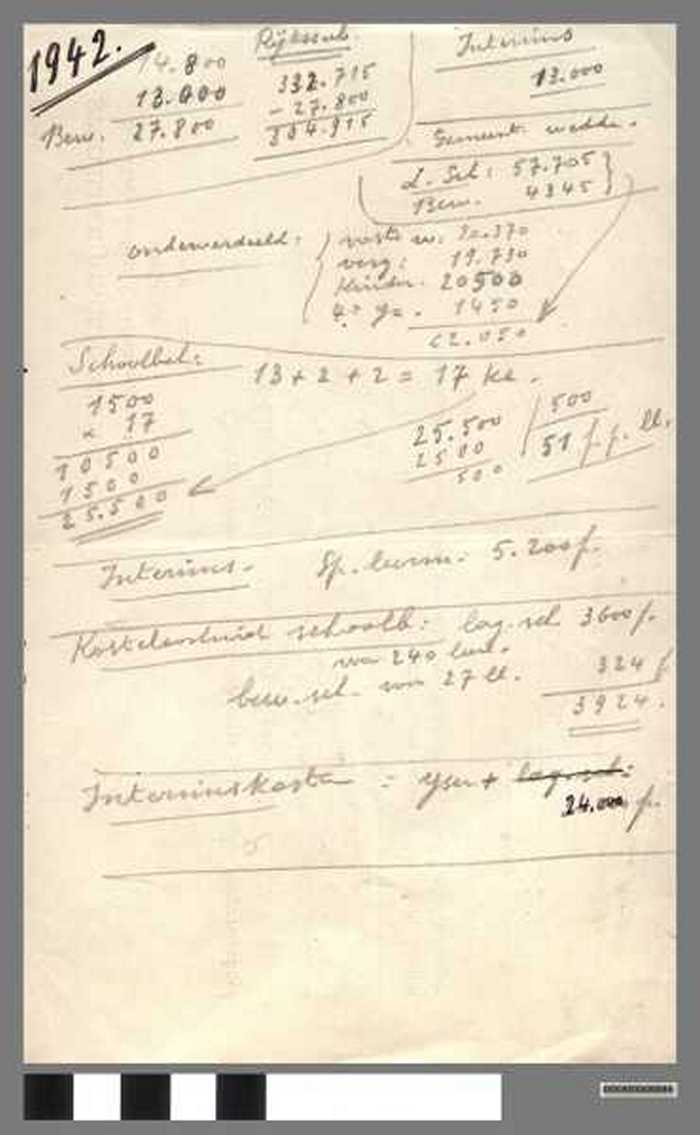 1942.
14.800
13.000
Bew. 27.800
Rijkssub.
332.715
- 27.800
304.915
Interims
13.000
Gemeent. wedde.
L. Sch: 57.705
Bew. 4345
onderverdeeld:
vaste w:
verg: 19.730
Kinder. 20500
1450
62.050
Schoolbeh:
13 + 2 + 2 = 17 kl.
1500
× 17
10500
1500
25.500
25.500
2500
500
500
51 f. p. ll.
Interims.
5.200 f.
Kosteloosheid schoolb: lag. sch 3600 f.
van 240 leer.
bew. sch. van 27 ll. 324 f
3924.
Interimskosten : Yser + lag. sch:
24.000 f.